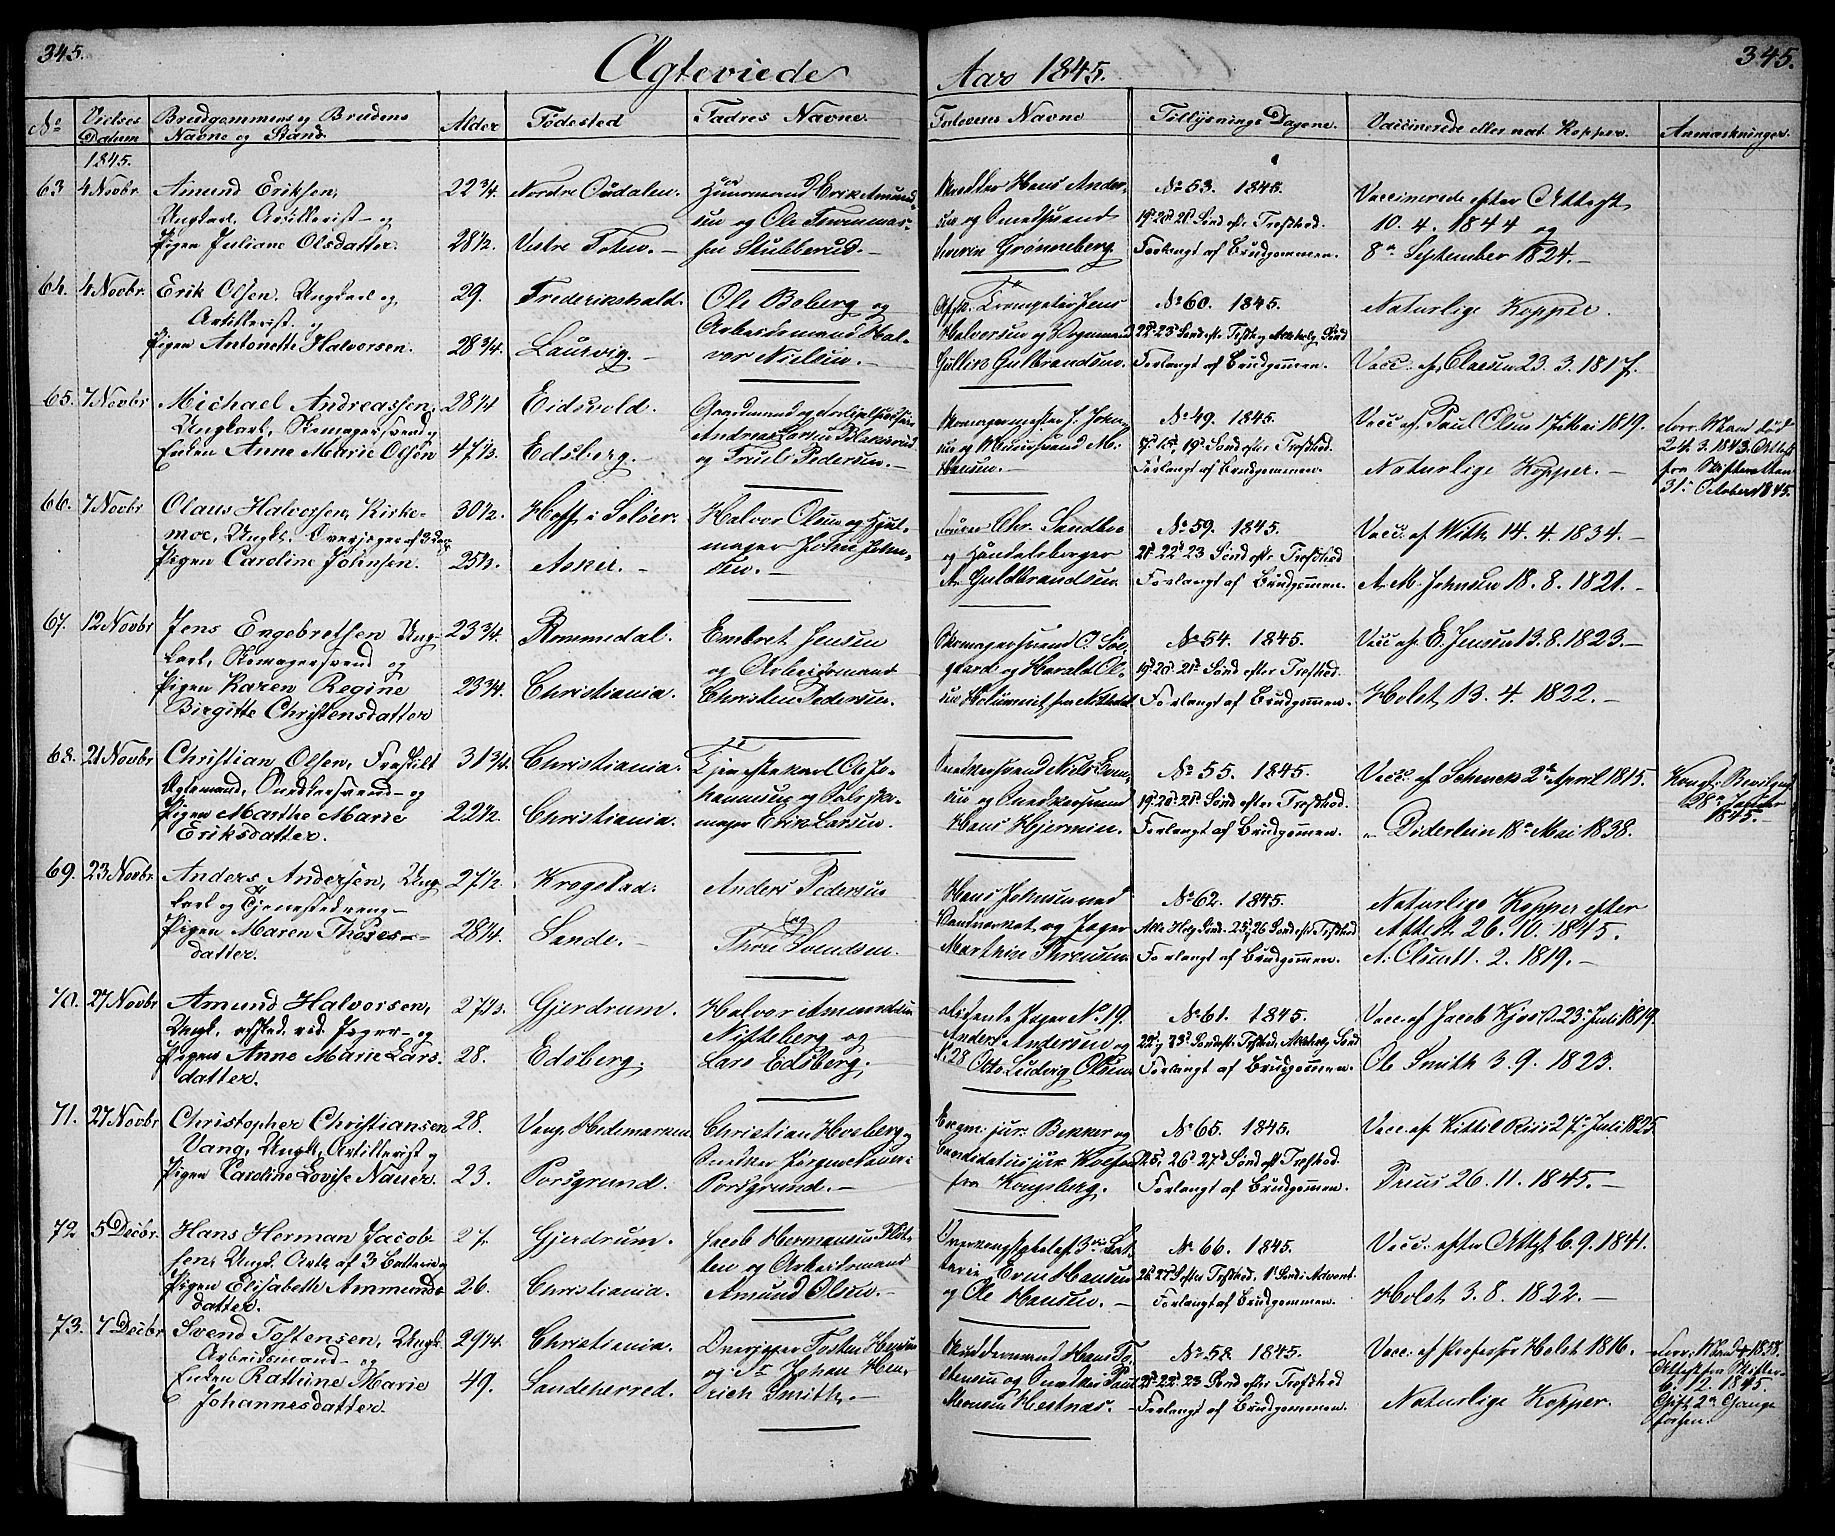 345.
Ægteviede
Aar 1845.
345.
No
Vielses Datum
Brudgommens og Brudens Navne og Stand.
Alder
Fødested
Fadres Navne.
Forlovernes Navne
Tillysnings Dagene.
Vaccinerede eller nat. Kopper.
Anmærkninger.
1845.
63 4 Novbr.
Amund Eriksen,
Ungkarl, Artillerist og
Pigen Juliane Olsdatter.
22 3/4
28 1/2
Nordre Oudalen.
Vestre Toten.
Erik Amund-
sen og Ole
Stubberud.
Hans Ander-
sen og
Grønneberg
No 53. 1845.
19de 20de 21de Sønd efter Trefshed.
Forlangt af Brudgommen.
Vaccinerede efter Attest
10. 4. 1844 og
8de September 1824.
64. 4 Novbr.
Erik Olsen, Ungkarl og
Artillerist.
Pigen Antonette Halvorsen.
29.
28 3/4
Frederikshald.
Laurvig.
Ole Boberg og
Arbeidsmand Hal-
vor Nielsen.
Trompeter Jens
Halversen og
Gulbrandsen.
No 60. 1845.
Forlangt af Brudgommen.
Naturlige Kopper.
Vacc. af Claesen 23. 3. 1817.
65. 7 Novbr
Michael Andreassen,
Ungkarl, Skomagersvend og
Enken Anne Marie Olsen
28 1/4
47 1/3
Eidsvold.
Edsberg.
Andreas Larsen
og Truls Pedersen.
Skomagermester J. Johan-
sen og Muursvend M.
Hansen.
No 49. 1845.
17de 18de 19de Sønd efter Trefshed.
Forlangt af Brudgommen.
Vacc. af Paul Olsen 17 Mai 1819.
Naturlige Kopper.
forr. Mand død
24. 3. 1843. Attest
fra Skifteretten
31. October 1845.
66. 7 Novbr
Olaus Halvorsen, Kirke-
moe, Ungk. Overjæger af 3
Pigen Caroline Johnsen.
30 1/2.
25 1/2.
Hoff i Soløer.
Asker.
Halvor Olsen og Hjul-
mager John John-
sen.
Chr. Sandbo
og Handelsborger
A. Guldbrandsen.
No 59. 1845.
21de 22de 23 Sønd efter Trefshed
Forlangt af Brudgommen.
Vacc. af With 14. 4. 1834.
A. M. Johnsen 18. 8. 1821.
67. 12 Novbr
Jens Engebretsen Ung-
karl, Skomagersvend og
Pigen Karen Regine
Birgitte Christensdatter
23 3/4.
23 3/4.
Rommedal.
Christiania.
Embret Jensen
og Arbeidsmand
Christen Pedersen.
Skomagersvend O. Sol-
gaard og Harald Ol-
sen
No 54. 1845.
19de 20de 21de Sønd efter Trefshed.
Forlangt af Brudgommen.
Vacc af E. Jensen 13. 8. 1823.
Holst 13. 4. 1822.
68. 21 Novbr
Christian Olsen, Fraskilt
Ægtemand, Snedkersvend og
Pigen Marthe Marie
Eriksdatter.
31 3/4.
22 1/2
Christiania.
Christiania.
Tjenestekarl Ole Jo-
hannesen og
mager Erik Larsen.
Snedkersvend Niels
sen og Snedkersvend
Hans
No 55. 1845.
19de 20de 21de Sønd efter Trefshed.
Forlangt af Brudgommen.
Vacc. af Schenck 2de April 1815.
" Diderlein 18de Mai 1838.
Kongl. Bevilg.
28de
1845.
69. 23 Novbr.
Anders Andersen, Ung-
karl og Tjenestedreng
Pigen Maren Thores-
datter.
27 1/2.
28 1/4.
Krogstad.
Sande.
Anders Pedersen
og
Thore Svendsen.
Hans Johnsen ved
og Jæger
Marthin
No 62. 1845.
Forlangt af Brudgommen.
Naturlige Kopper efter
Attest 26. 10. 1845.
A. Olsen 11. 2. 1819.
70. 27 Novbr
Amund Halvorsen,
Ungk. afsked. ved Jæger og
Pigen Anne Marie Lars-
datter.
27 2/3.
28.
Gjerdrum.
Edsberg.
Halvor Amundsen
Nitteberg og
Lars Edsberg.
Jæger No 19.
Anders Andersen og
No 28 Otto Ludvig Olsen.
No 61. 1845.
Forlangt af Brudgommen.
Vacc. af Jacob Kjos d. 23 Juli 1819.
Ole Smith 3. 9. 1823.
71. 27 Novbr
Christopher Christiansen
Vang, Ungk. Artillerist og
Pigen Caroline Lovise Nauer.
28.
23.
Vang, Hedemarken
Porsgrund.
Christian Hoeberg og
Snedker Jørgen Nauer
Porsgrund.
Exam. jur. Bekker og
Candidatus jur.
fra Kongsberg.
No 65. 1845.
25de 26de 27de Sønd eft Trefshed.
Forlangt af Brudgommen.
Vacc. af Kittil Riis 27 Juli 1825.
Preus 26. 11. 1845.
72 5 Decbr.
Hans Herman Jacob-
sen, Ungk. Artl. af 3 Batterie og
Pigen Elisabeth Ammunds-
datter.
27.
26.
Gjerdrum.
Christiania.
Jacob Hermansen
og Arbeidsmand
Amund Olsen.
Bat-
terie Even Hansen
og Ole Hansen.
No 66. 1845.
Forlangt af Brudgommen.
Vacc. efter Attest 6. 9. 1841.
Holst 3. 8. 1822.
73. 7 Decbr
Svend Tostensen, Ungk.
Arbeidsmand og
Enken Kathrine Marie
Johannesdatter.
29 1/4.
49.
Christiania.
Sandeherred.
Overjæger Tosten Hansen
og Johan Hen-
rich Smith.
Hans To-
stensen og Snedker Paul
Monsen Hestnæs.
No 58. 1845.
21de 22de 23 Sønd efter Trefshed
Forlangt af Brudgommen.
Vacc. af Professor Holst 1816.
Naturlige Kopper.
forr. Mand † 1838.
Attest fra Skifter.
6. 12. 1845.
Gift 2de Gange
forhen.